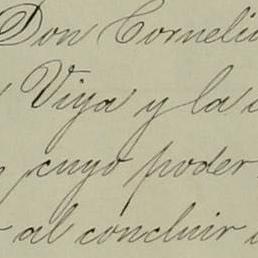 Don Cornelio
Viya y la
cuyo poder
al concluir